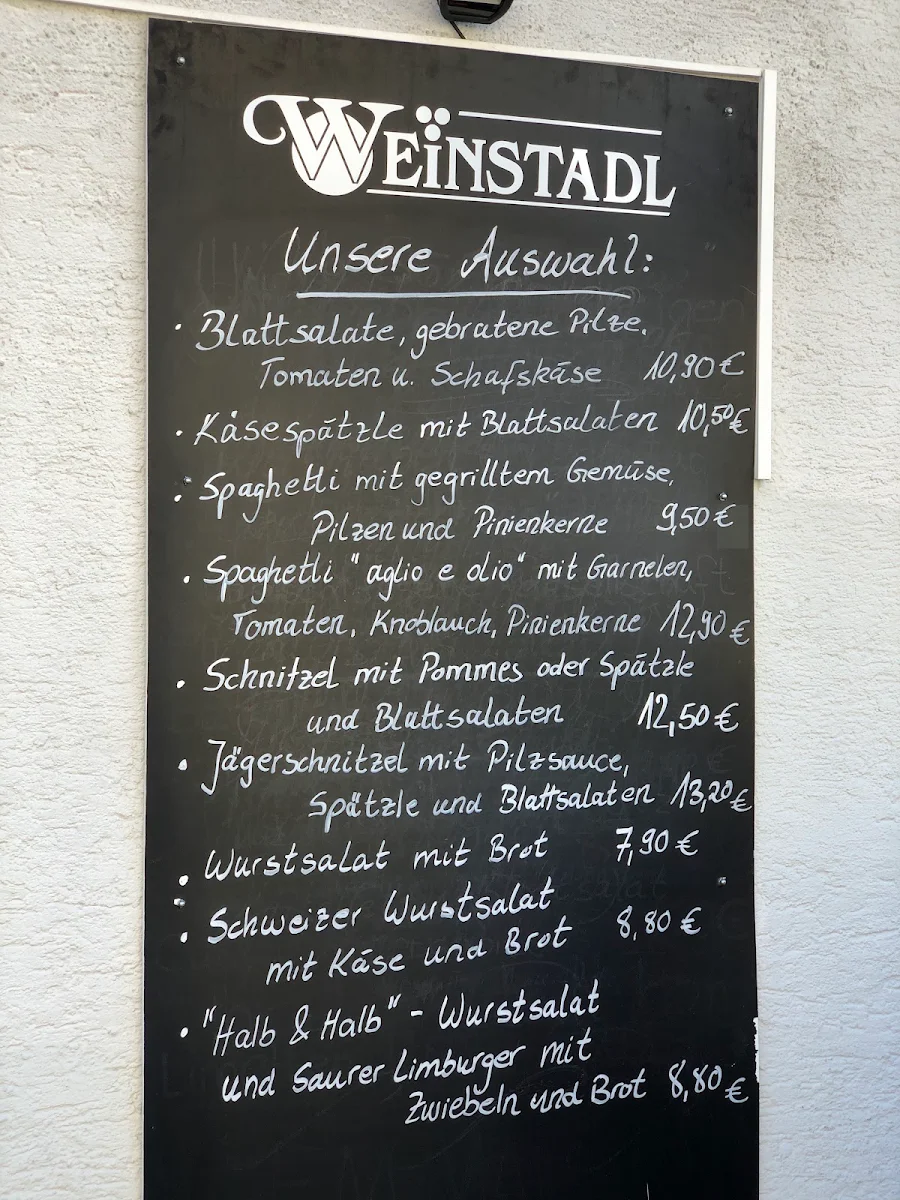 WEINSTADL
Unsere Auswahl:
· Blattsalate, gebratene Pilze,
Tomaten u. Schafskäse 10,90 €
· Käsespätzle mit Blattsalaten 10,50 €
· Spaghetti mit gegrilltem Gemüse,
Pilzen und Pinienkerne 9,50 €
· Spaghetti "aglio e olio" mit Garnelen,
Tomaten, Knoblauch, Pinienkerne 12,90 €
· Schnitzel mit Pommes oder Spätzle
und Blattsalaten 12,50 €
· Jägerschnitzel mit Pilzsauce,
Spätzle und Blattsalaten 13,20 €
· Wurstsalat mit Brot 7,90 €
· Schweizer Wurstsalat
mit Käse und Brot 8,80 €
· "Halb & Halb" - Wurstsalat
und Saurer Limburger mit
Zwiebeln und Brot 8,80 €